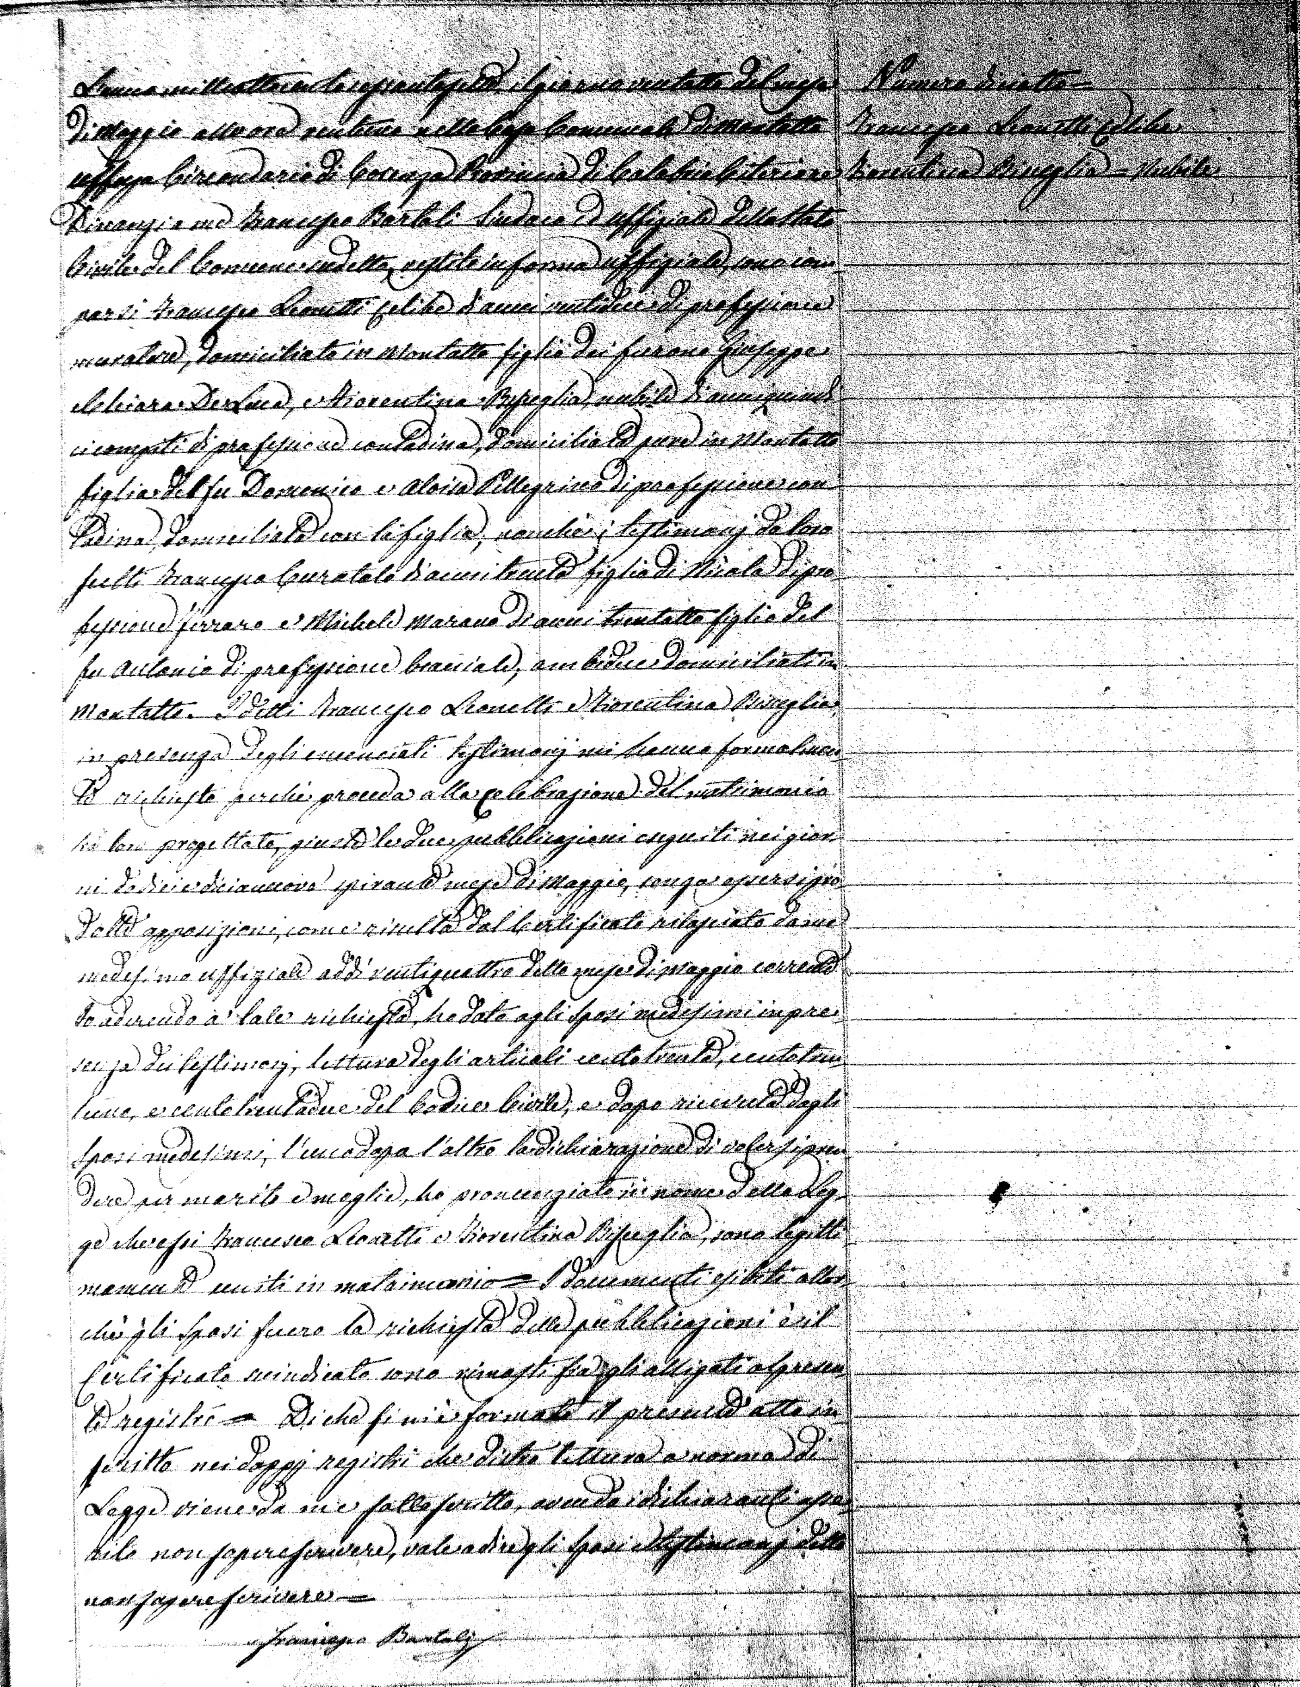 L'anno mille ottocento sessantasette il giorno ventotto del mese
di Maggio alle ore ventuno nella Casa Comunale di Montalto
Uffugo Circondario di Cosenza Provincia di Calabria Citeriore
Dinanzi a me Francesco Bartoli Sindaco ed uffiziale dello Stato
Civile del Comune sudetto, vestito in forma uffiziale, sono com
parsi Francesco Leonetti celibe di anni ventidue di professione
muratore, domiciliato in Montalto figlio dei furono Giuseppe
e Chiara De Luca, e Fiorentina Bisceglia, nubile di anni quindi
ci compiti di professione contadina, domiciliata pure in Montalto
figlia del fu Domenico e Aloisa Pellegrino di professione con
tadina, domiciliata con la figlia, nonchè i testimonj da loro
scelti Francesco Curatolo di anni trenta figlio di Nicola di pro
fessione ferraro e Michele Marano di anni trentotto figlio del
fu Antonio di professione bracciale, ambidue domiciliati in
Montalto. I detti Francesco Leonetti e Fiorentina Bisceglia,
in presenza degli enunciati testimonj mi hanno formalmen
te richiesto perchè proceda alla celebrazione del matrimonio
tra loro progettato, giusta le due pubblicazioni eseguiti nei gior
ni dodici e diciannove spirante mese di Maggio, senza essersi pro
dotte opposizioni, come risulta dal Certificato rilasciato da me
medesimo uffiziale addì ventiquattro detto mese di Maggio corrente
Io aderendo a tale richiesta, ho dato agli sposi medesimi in pre
senza dei testimonj, lettura degli articoli centotrenta, centotren
tuno, e centotrentadue del Codice Civile, e dopo ricevuta dagli
sposi medesimi, l'uno dopo l'altro la dichiarazione di volersi pren
dere per marito e moglie, ho pronunziato in nome della Leg
ge che essi Francesco Leonetti e Fiorentina Bisceglia, sono legitti
mamente uniti in matrimonio = I documenti esibiti allor
chè gli sposi fuero la richiesta delle pubblicazioni è il
Certificato suindicato sono rimasti fra gli alligati al presen
te registro = Di che si ni è formato il presente atto in
scritto nei doppj registri che dietro lettura a norma di
Legge viene da me sottoscritto, avendo i dichiaranti asse
rito non sapere scrivere, vale a dire gli sposi e testimonj detto
non sapere scrivere =
Francesco Bartoli
Numero diciotto =
Francesco Leonetti Celibe
Fiorentina Bisceglia = Nubile